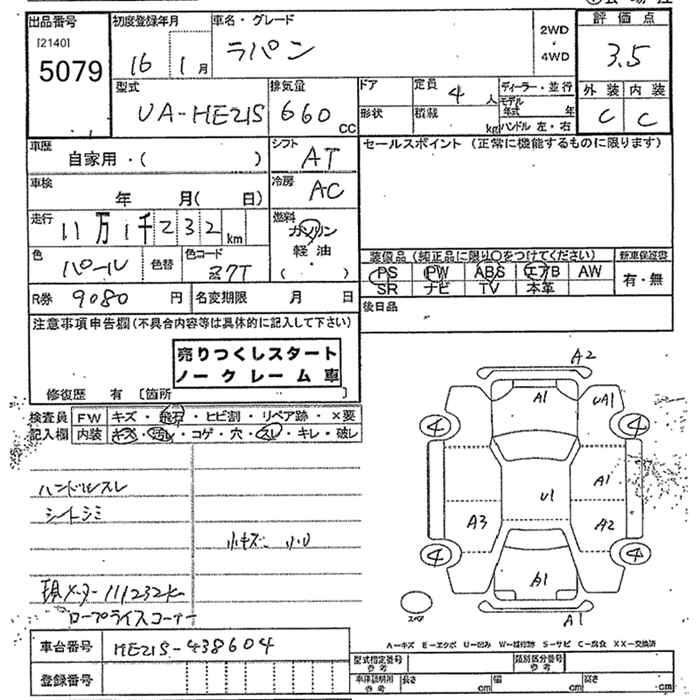 出品番号
[2140]
5079
初度登録年月
16 1月
車名・グレード
ラパン
2WD
・
4WD
評価点
3.5
外装 内装
C C
型式
UA-HE21S
排気量
660 CC
ドア
形状
定員 4 人
積載 kg
ディーラー・並行
モデル年式 年
ハンドル 左・右
車歴
自家用・( )
シフト
AT
冷房
AC
車検
年 月( 日)
走行
11万1千232km
燃料
ガソリン
軽油
( ・ )
色
パール
色替
色コード
Z7T
R券 9080 円
名変期限 月 日
セールスポイント (正常に機能するものに限ります)
装備品 (純正品に限り○をつけてください)
PS PW ABS エアB AW
SR ナビ TV 本革
新車保証書
有・無
後日品
注意事項申告欄(不具合内容等は具体的に記入して下さい)
売りつくしスタート
ノークレーム車
修復歴 有 [箇所 ]
検査員 FW キズ・飛石・ヒビ割・リペア跡・×要
記入欄 内装 キズ・汚れ・コゲ・穴・スレ・キレ・破レ
ハンドルスレ
シートシミ
小キズ 小U
現メーター111232km
ロープライスコーナー
A2
A1
UA1
4
4
A1
U1
A3
A2
4
4
A1
A1
スペア
A-キズ E-エクボ U-凹み W-補修跡 S-サビ C-腐食 XX-交換済
車台番号 HE21S-438604
登録番号
型式指定番号
参考
類別区分番号
参考
車体説明用
参考
長さ cm
幅 cm
高さ cm